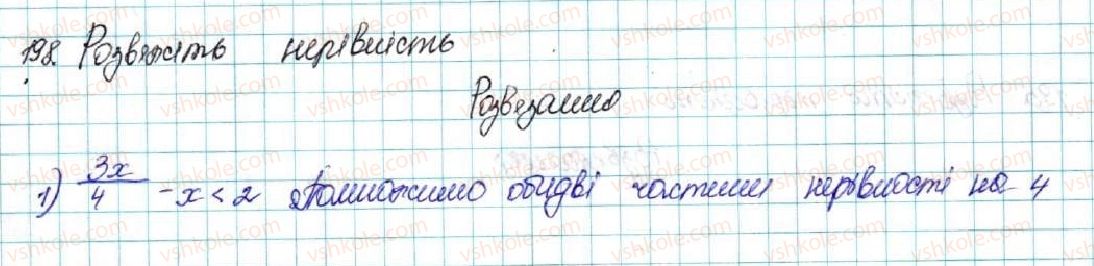 198. Розвяжіть нерівність
Розвязання
1) 3x/4 - x < 2 Помножимо обидві частини нерівності на 4